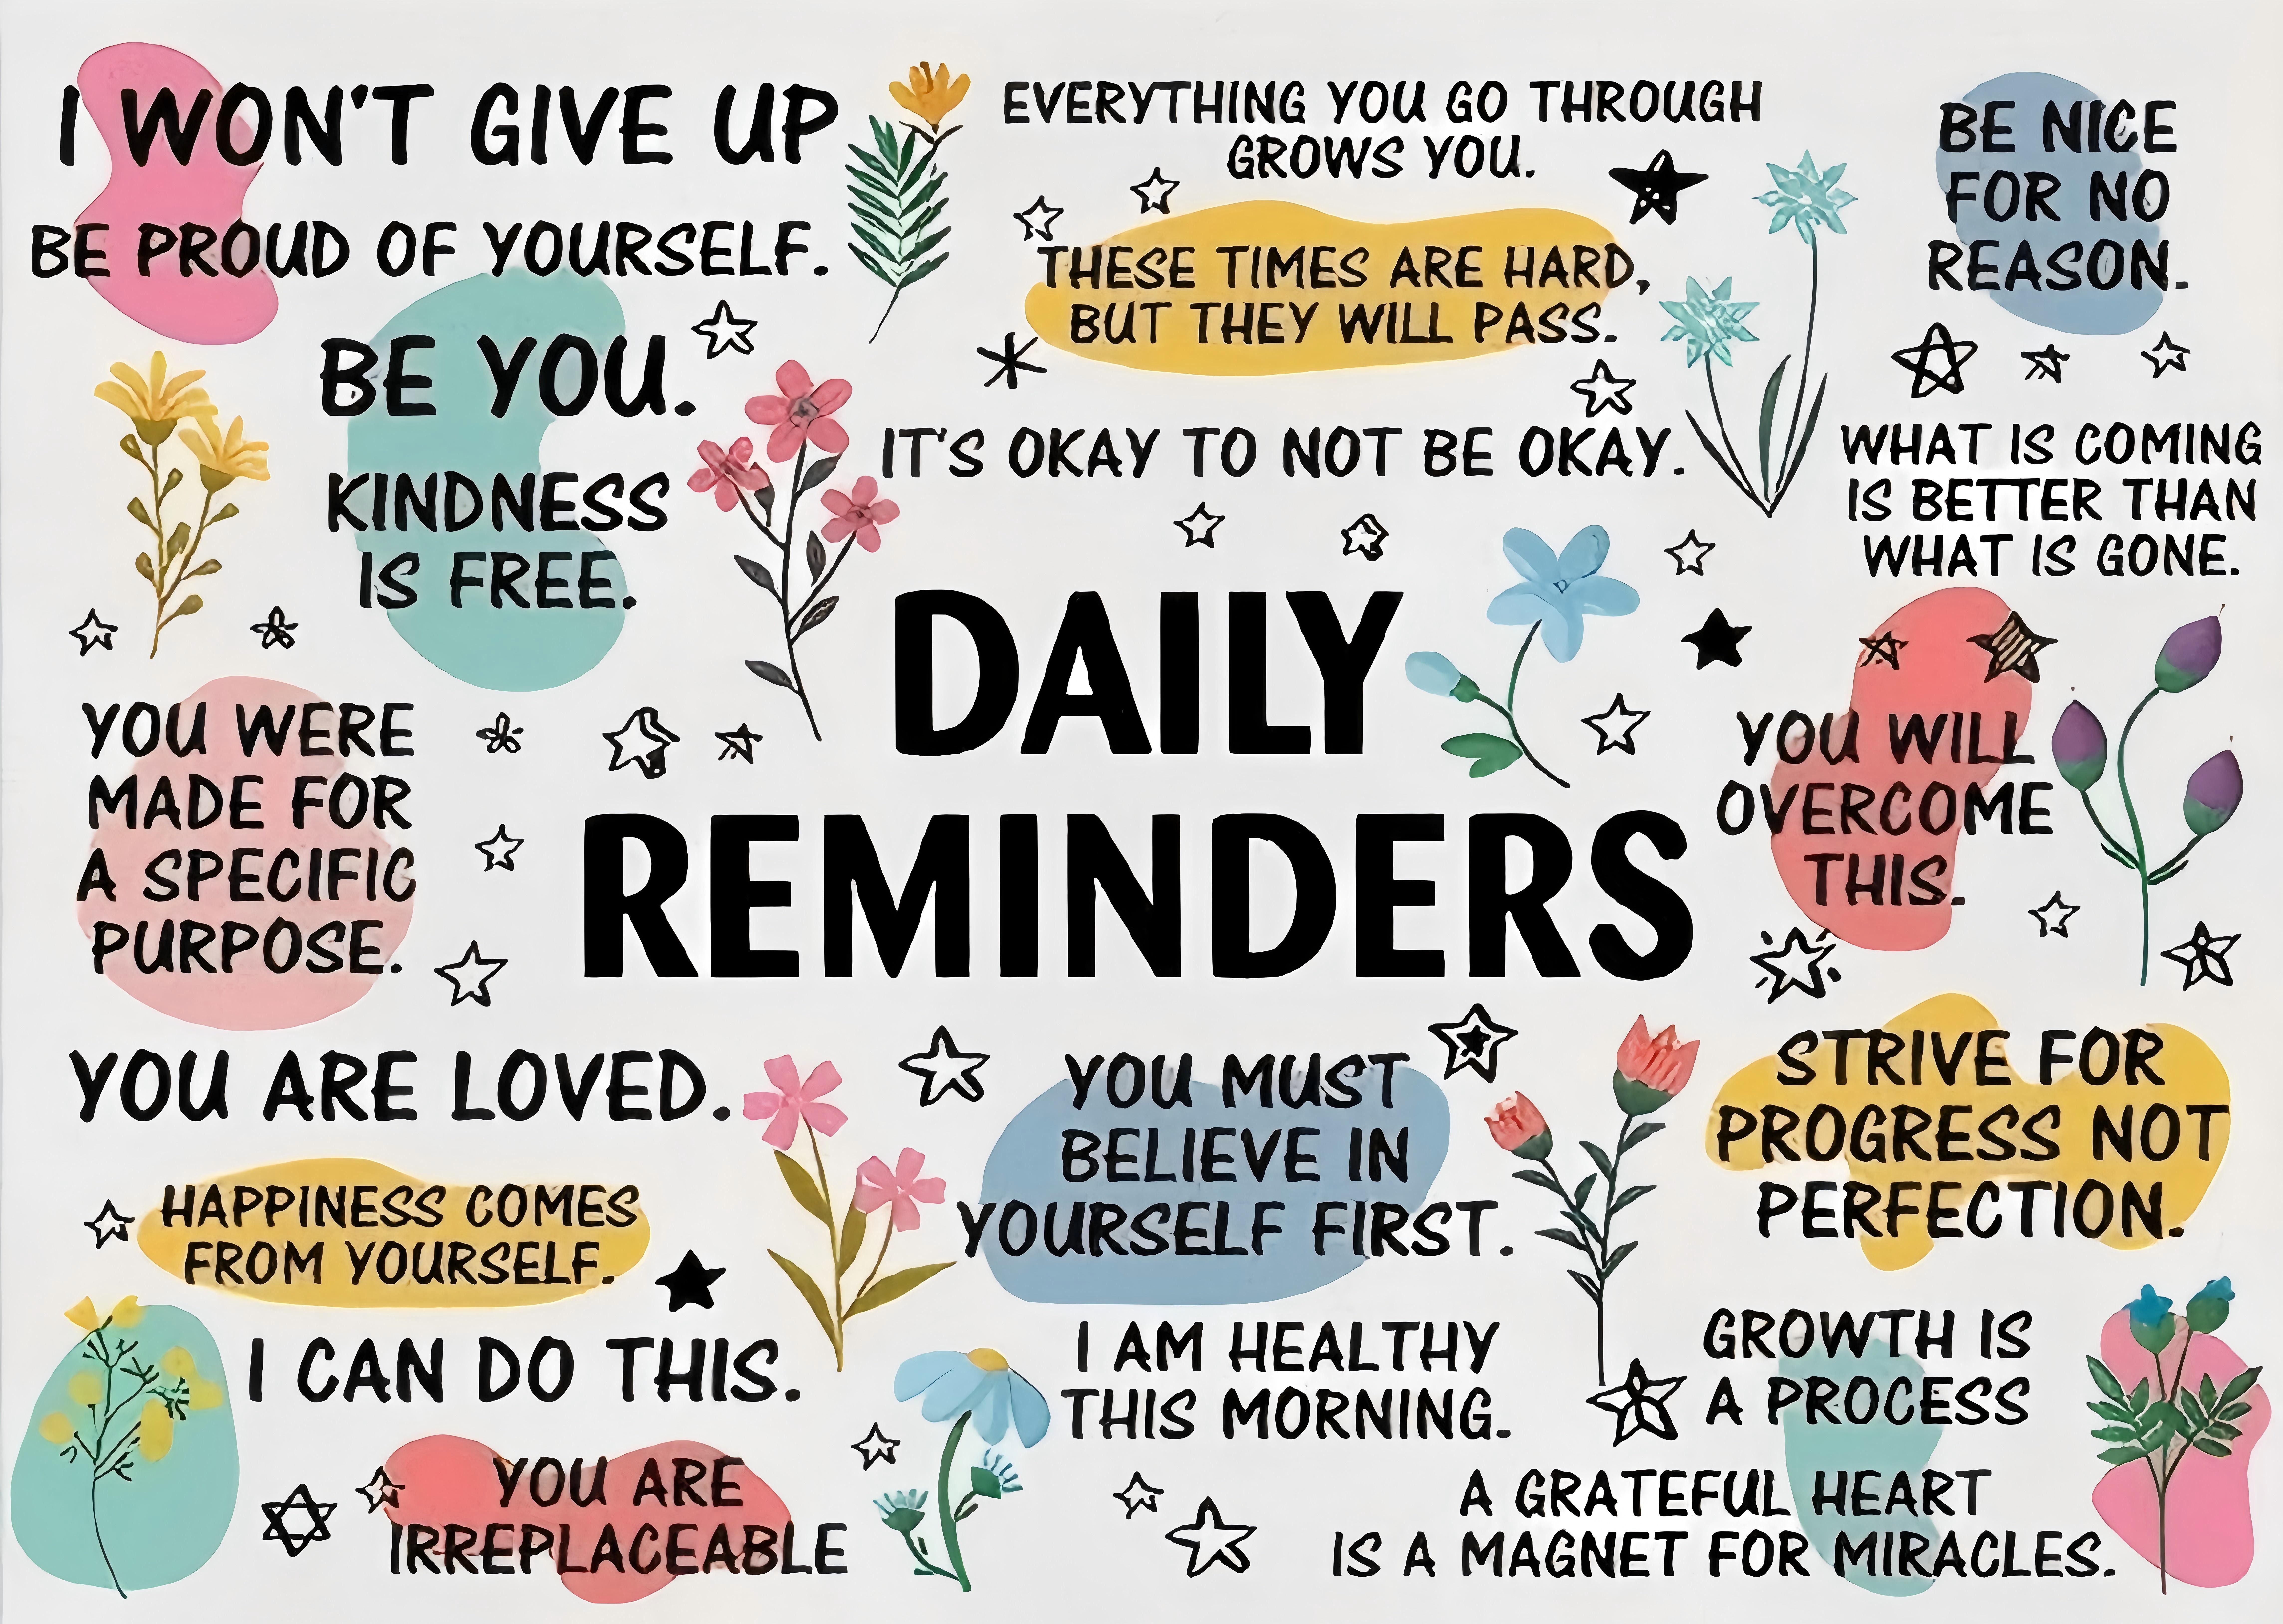 I WON'T GIVE UP
BE PROUD OF YOURSELF.
BE YOU.
KINDNESS
IS FREE.
EVERYTHING YOU GO THROUGH
GROWS YOU.
THESE TIMES ARE HARD,
BUT THEY WILL PASS.
IT'S OKAY TO NOT BE OKAY.
BE NICE
FOR NO
REASON.
WHAT IS COMING
IS BETTER THAN
WHAT IS GONE.
DAILY
REMINDERS
YOU WERE
MADE FOR
A SPECIFIC
PURPOSE.
YOU WILL
OVERCOME
THIS.
YOU ARE LOVED.
HAPPINESS COMES
FROM YOURSELF.
I CAN DO THIS.
YOU ARE
IRREPLACEABLE
YOU MUST
BELIEVE IN
YOURSELF FIRST.
I AM HEALTHY
THIS MORNING.
STRIVE FOR
PROGRESS NOT
PERFECTION.
GROWTH IS
A PROCESS
A GRATEFUL HEART
IS A MAGNET FOR MIRACLES.